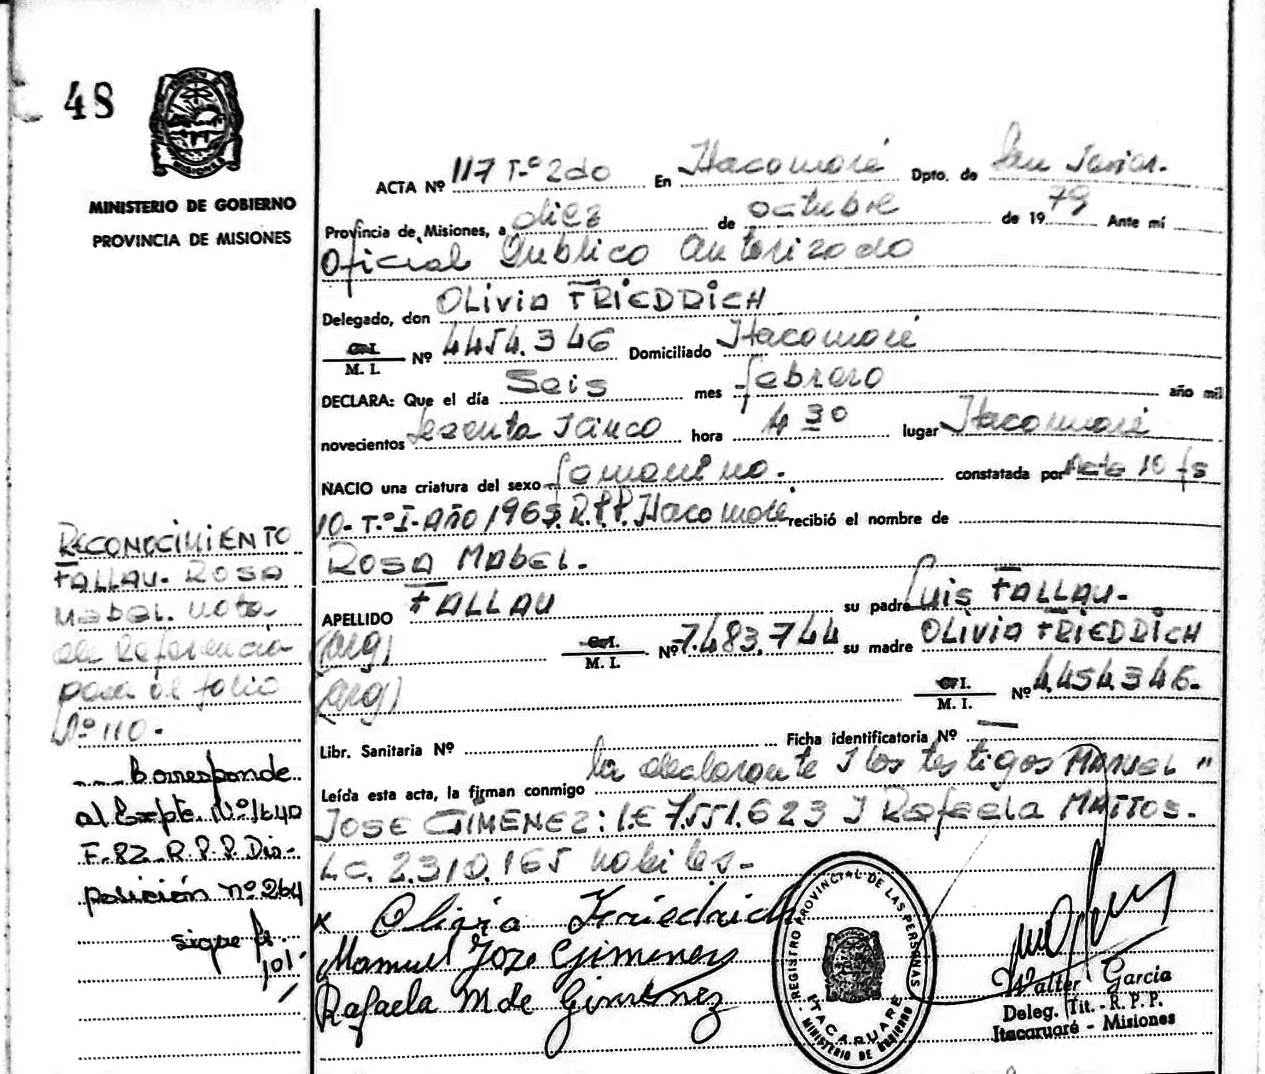 48
MISIONES
MINISTERIO DE GOBIERNO
PROVINCIA DE MISIONES
ACTA Nº 117 T.º 2do En Itacaruaré Dpto. de San Javier.
Provincia de Misiones, a diez de octubre de 1979 Ante mí
Oficial Publico Autorizado
Delegado, don OLIVIA FRIEDRICH
C.I.
M. I. Nº 4454.346 Domiciliado Itacaruaré
DECLARA: Que el día Seis mes febrero año mil
novecientos sesenta I cinco hora 4 30 lugar Itacaruaré
NACIO una criatura del sexo femenino. constatada por Acta 10 fs
10- T.º I- AÑO 1965. R.P.P. Itacaruaré recibió el nombre de
ROSA MABEL.
APELLIDO FALLAU su padre Luis FALLAU.
(arg) C.I. M. I. Nº 7.483.744 su madre OLIVIA FRIEDRICH
(arg) C.I. M. I. Nº 4.454.346.
Libr. Sanitaria Nº Ficha identificatoria Nº —
Leída esta acta, la firman conmigo la declarante I los testigos MANUEL "
JOSE GIMENEZ: I.E 7.551.623 I Rafaela MATTOS.
L.C. 2.310.165 habiles.-
x Olivia Friedrich
Manuel Jose Gimenez
Rafaela M de Gimenez
REGISTRO PROVINCIAL DE LAS PERSONAS
ITACARUARE
MINISTERIO DE GOBIERNO
Walter Garcia
Deleg. Tit. - R. P. P.
Itacaruaré - Misiones
RECONOCIMIENTO
FALLAU. ROSA
MABEL. nota
de Referencia
pasa al folio
Nº 110-
Corresponde
al Expte. Nº 1640
F-82 R.P.P. Dis-
posición nº 264
sigue fs.
101-